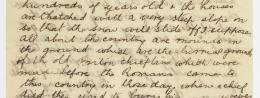 hundreds of years old & the houses
are thatched with a very steep slope on
so that the snow will slide off I suppose
all about the country are mounds in
the ground which are the burial ground
of the old Briton chieftans which were
made before the Romans came to
this country in those days when a chief
died they used to